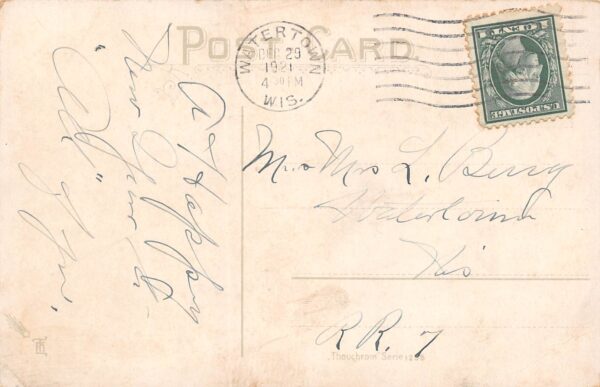 POST CARD.
WATERTOWN
DEC 29
1921
4 30 PM
WIS.
1 CENT 1
U.S. POSTAGE
A Happy
New Year to
"All" of You,
Mr. & Mrs L. Berry
Watertown
Wis
R.R. 7
Theochrom Serie